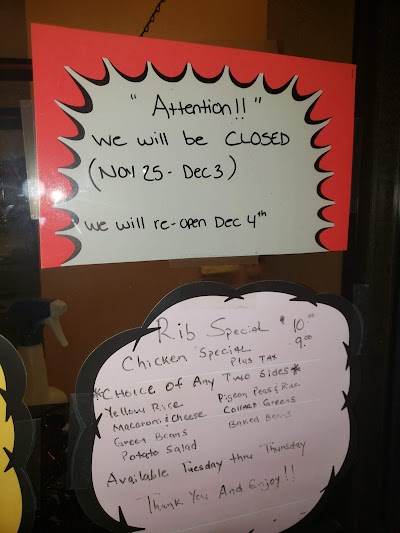 " Attention!! "
We will be CLOSED
(Nov 25 - Dec 3)
We will re-open Dec 4th
Rib Special $10.00
Chicken Special 9.00
Plus Tax
*Choice Of Any Two Sides*
Yellow Rice Pigeon Peas & Rice
Macaroni & Cheese Collard Greens
Green Beans Baked Beans
Potato Salad
Available Tuesday thru Thursday
Thank You And Enjoy!!